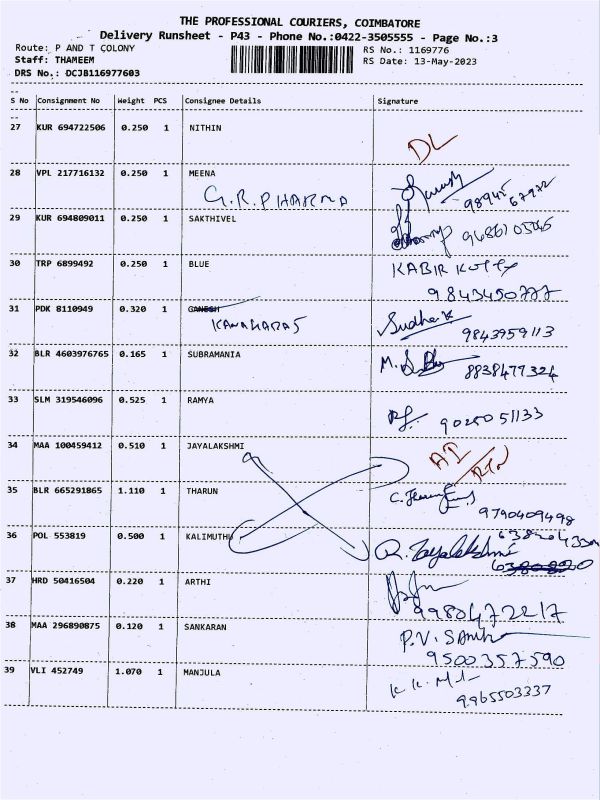 THE PROFESSIONAL COURIERS, COIMBATORE
Delivery Runsheet - P43 - Phone No.:0422-3505555 - Page No.:3
Route: P AND T COLONY
RS No.: 1169776
Staff: THAMEEM
RS Date: 13-May-2023
DRS No.: DCJB116977603
S No Consignment No Weight PCS Consignee Details Signature
27 KUR 694722506 0.250 1 NITHIN
DL
28 VPL 217716132 0.250 1 MEENA
G.R.PHARMA
98945 67972
29 KUR 694809011 0.250 1 SAKTHIVEL
30 TRP 6899492 0.250 1 BLUE KABIR
31 PDK 8110949 0.320 1 GANESH
Sudha K
9843959113
32 BLR 4603976765 0.165 1 SUBRAMANIA
8838477324
33 SLM 319546096 0.525 1 RAMYA
34 MAA 100459412 0.510 1 JAYALAKSHMI
35 BLR 665291865 1.110 1 THARUN
9790409498
36 POL 553819 0.500 1 KALIMUTHU
R. Jayalakshmi
37 HRD 50416504 0.220 1 ARTHI
38 MAA 296890875 0.120 1 SANKARAN
P.V.
9500357590
39 VLI 452749 1.070 1 MANJULA
9965503337